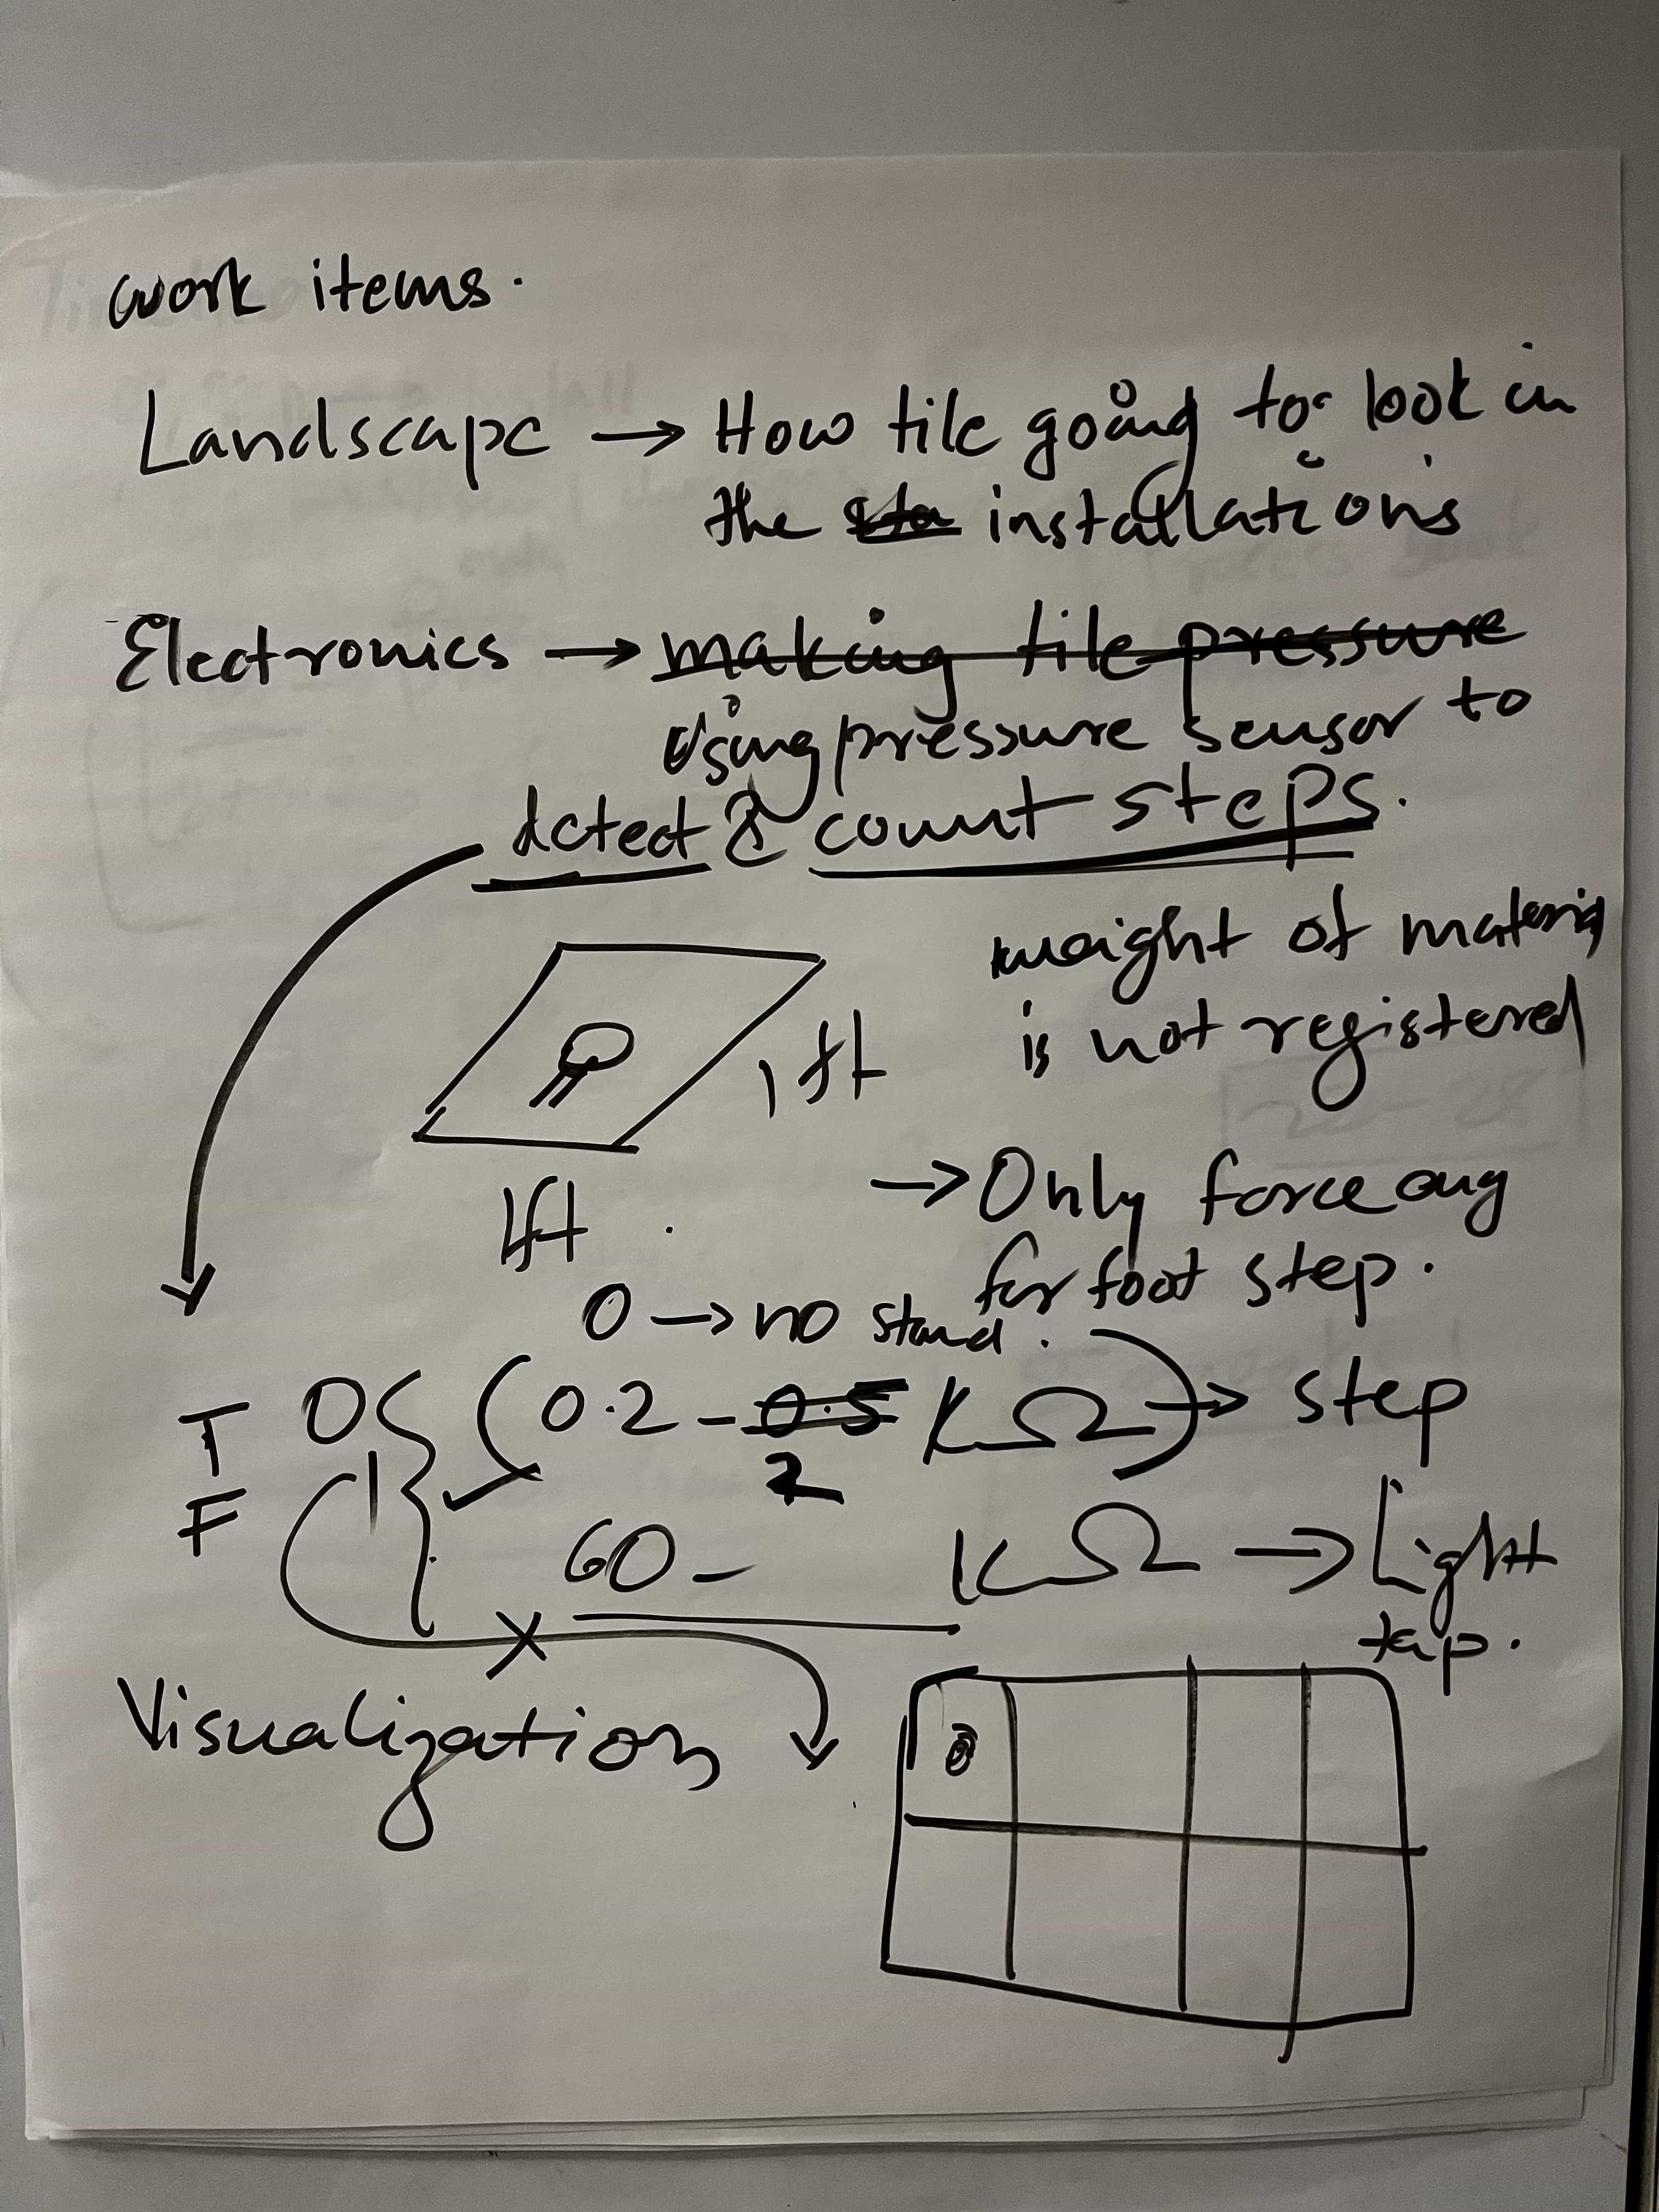 work items.
Landscape → How tile going to look in
the installations
Electronics → making tile pressure
Using pressure sensor to
detect & count steps.
weight of material
is not registered
1 ft
1ft
→ Only force
for foot step.
0 → no stand.
T 0 (0.2 - 0.5 KΩ) → step
2
F 1
60 - KΩ → Light
tap.
Visualization